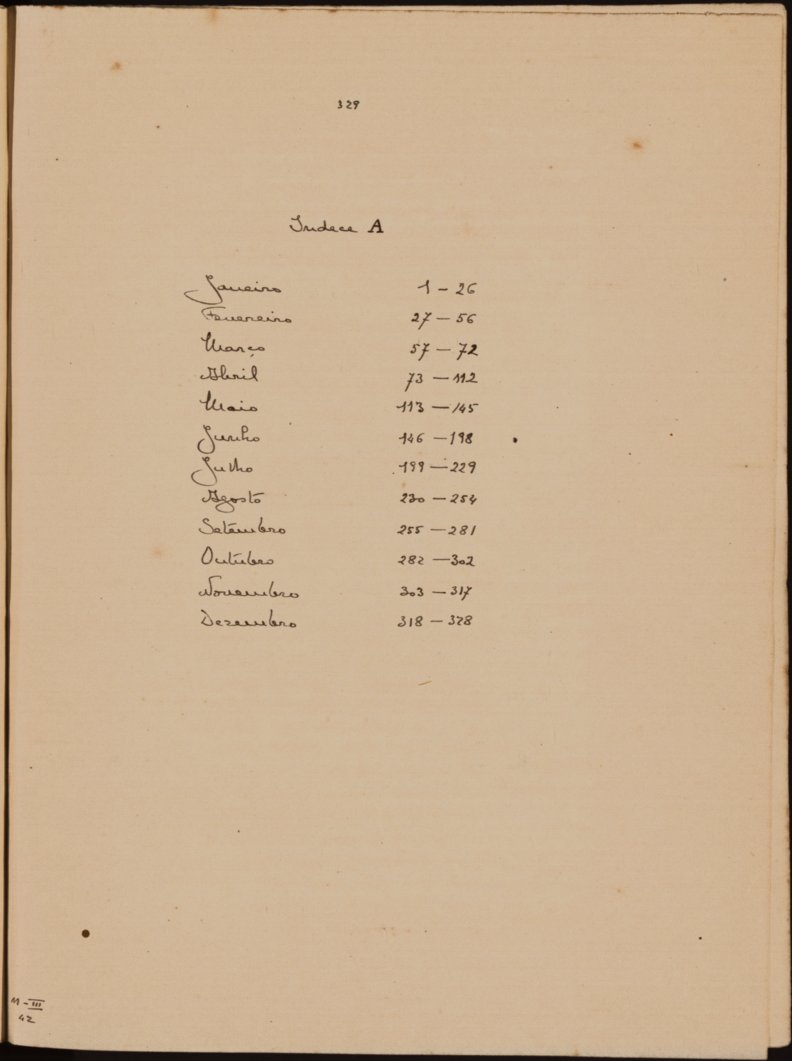 329
Indece A
Janeiro 1 – 26
Fevereiro 27 – 56
Março 57 – 72
Abril 73 – 112
Maio 113 – 145
Junho 146 – 198
Julho 199 – 229
Agosto 230 – 254
Setembro 255 – 281
Outubro 282 – 302
Novembro 303 – 317
Dezembro 318 – 328
M - III
42